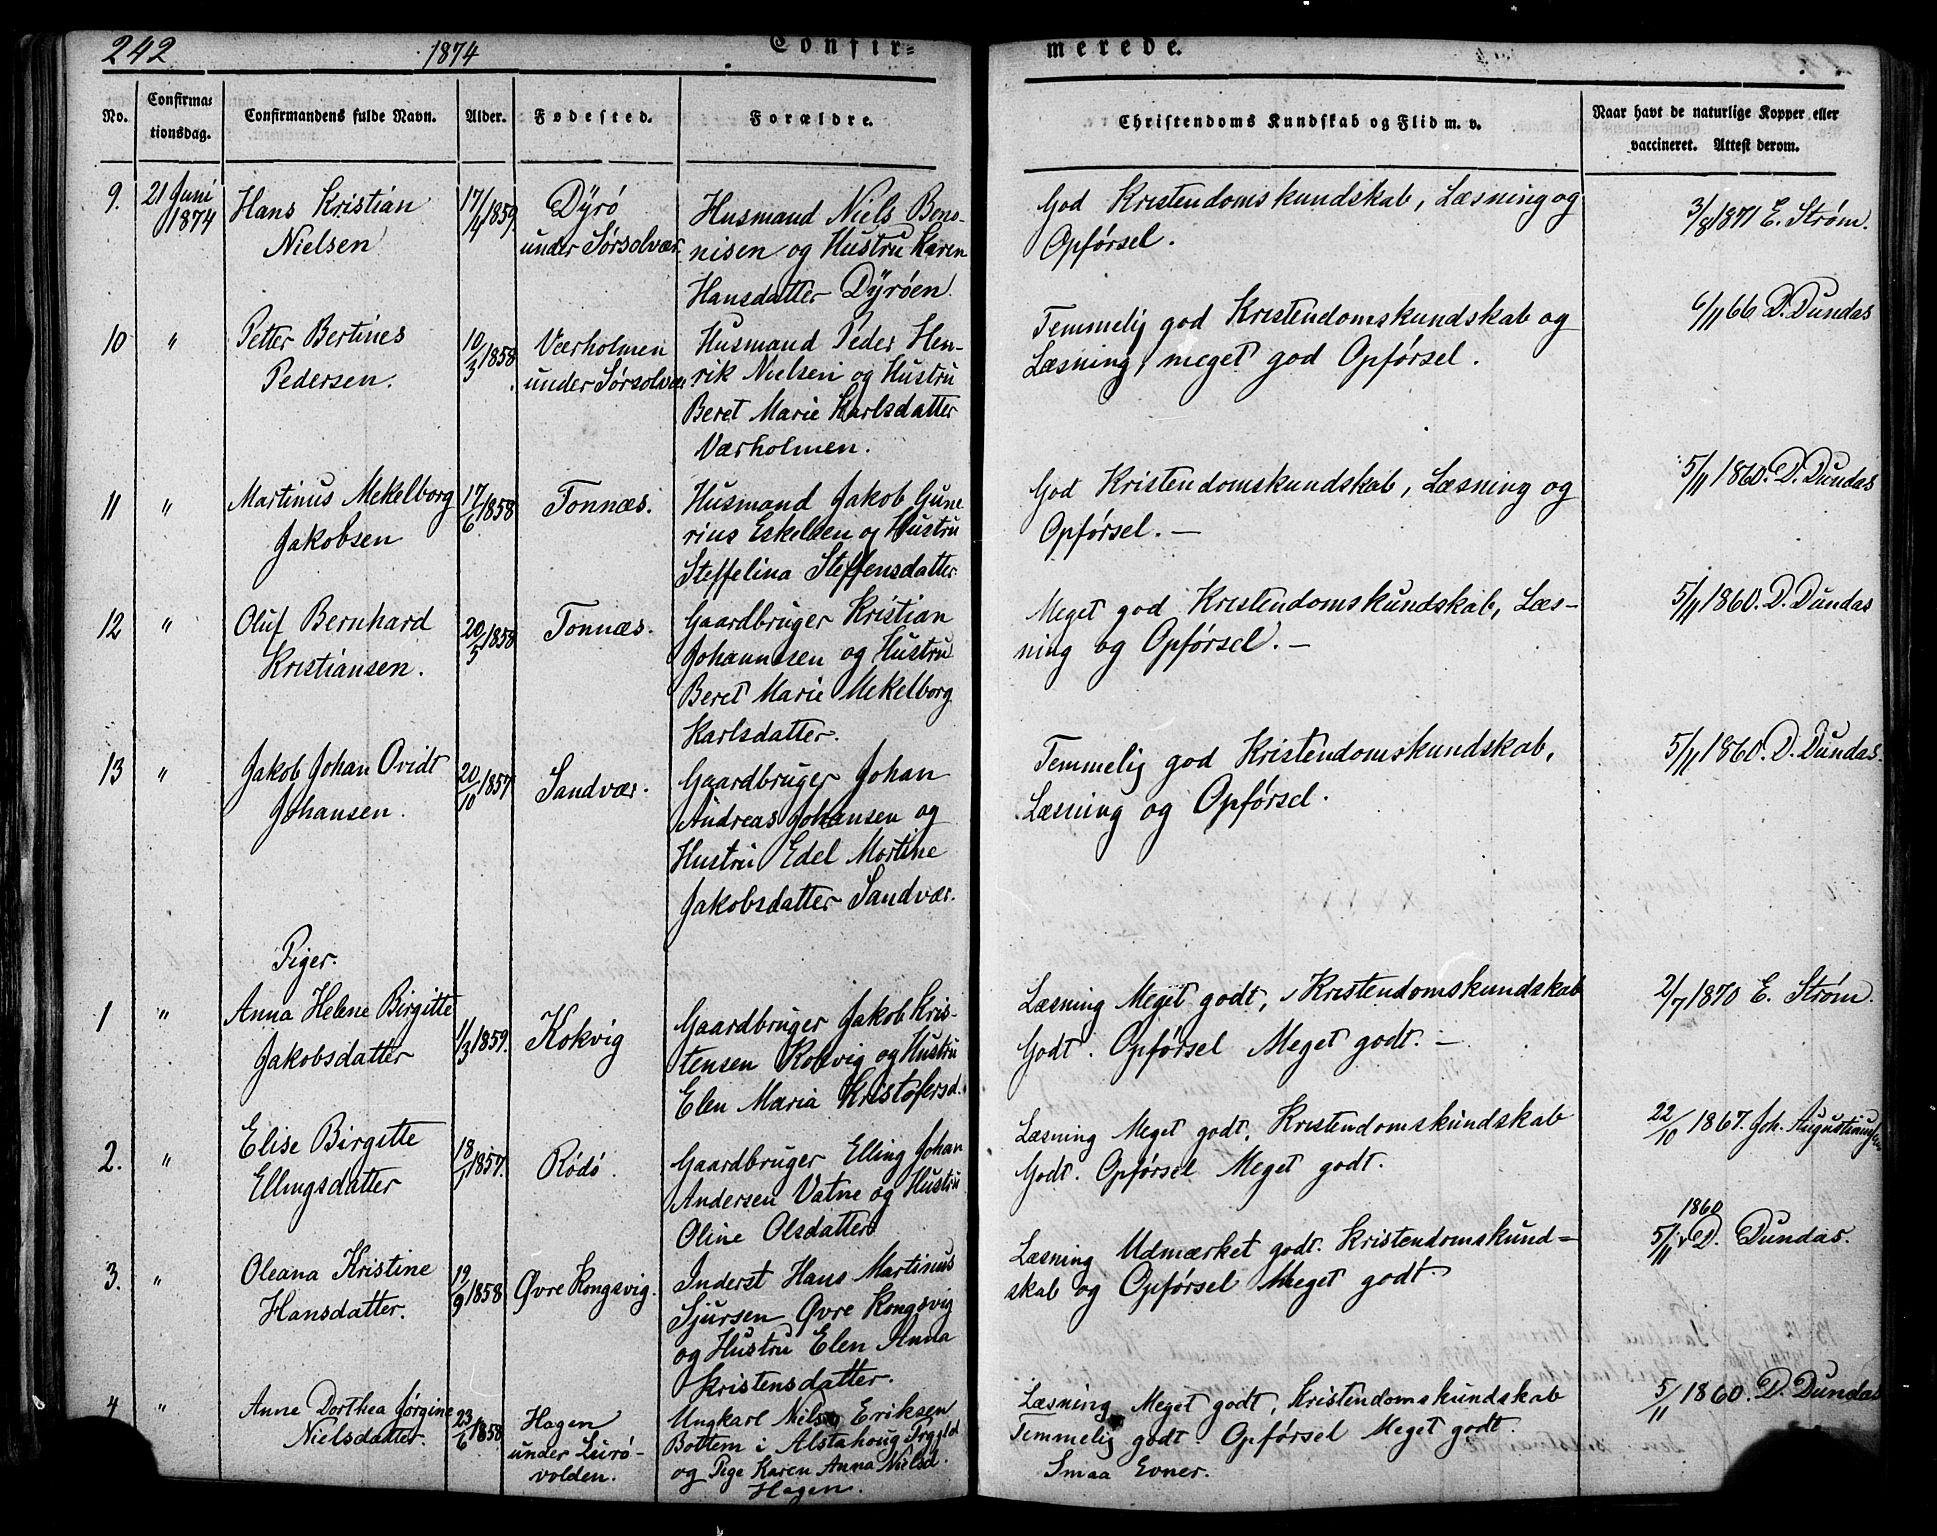 242
1874
Confir=
merede.
No.
Confirma=
tionsdag.
Confirmandens fulde Navn.
Alder.
Fødested.
Forældre.
Christendoms Kundskab og Flid m. v.
Naar havt de naturlige Kopper eller
vaccineret. Attest derom.
9.
21 Juni
1874
Hans Kristian
Nielsen
17/4 1859.
Dyrø
under Sørsolvær.
Husmand Niels Beno-
nisen og Hustru Karen
Hansdatter Dyrøen.
God Kristendomskundskab, Læsning og
Opførsel.
3/8 1871 E. Strøm.
10
"
Petter Bertines
Pedersen.
10/3 1858.
Værholmen
under Sørsolvær
Husmand Peder Hen-
rik Nielsen og Hustru
Beret Marie Karlsdatter
Værholmen.
Temmelig god Kristendomskundskab og
Læsning, meget god Opførsel.
6/11 66 D. Dundas
11
"
Martinus Mekelborg
Jakobsen
17/6 1858
Tonnæs.
Husmand Jakob Gune
rius Eskelsen og Hustru
Steffelina Steffensdatter
God Kristendomskundskab, Læsning og
Opførsel. —
5/11 1860. D. Dundas
12
"
Oluf Bernhard
Kristiansen.
20/5 1858
Tonnæs.
Gaardbruger Kristian
Johannesen og Hustru
Beret Marie Mekelborg
Karlsdatter.
Meget god Kristendomskundskab, Læs-
ning og Opførsel. —
5/11 1860. D. Dundas
13
"
Jakob Johan Ovidt
Johansen.
20/10 1857.
Sandvær.
Gaardbruger Johan
Andreas Johansen og
Hustru Edel Martine
Jakobsdatter Sandvær.
Temmelig god Kristendomskundskab,
Læsning og Opførsel.
5/11 1860. D. Dundas.
Piger.
1
"
Anna Helene Birgitte
Jakobsdatter
11/3 1859.
Kokvig
Gaardbruger Jakob Kris-
tensen Kokvig og Hustru
Elen Maria Kristofersd.
Læsning Meget godt, Kristendomskundskab
Godt. Opførsel Meget godt. —
2/7 1870 E. Strøm.
2.
"
Elise Birgitte
Ellingsdatter
1857.
Rødø.
Gaardbruger Elling Johan
Andersen Vatne og Hustru
Oline Olsdatter
Læsning Meget godt, Kristendomskundskab
Godt. Opførsel Meget godt.
22/10 1867. Joh. Augustinussen
3.
"
Oleana Kristine
Hansdatter.
19/9 1858
Øvre Kongsvig.
Inderst Hans Martinus
Sjursen Øvre Kongsvig
og Hustru Elen Anna
Kristensdatter.
Læsning Udmærket godt. Kristendomskund=
skab og Opførsel Meget godt.
1860
5/11 D. Dundas.
4
"
Anne Dorthea Jørgine
Nielsdatter.
23/6 1858
Hagen
under Lurø-
volden.
Ungkarl Niels Eriksen
Bottem i Alstahoug Prgjld
og Pige Karen Anna Nielsd.
Hagen.
Læsning Meget godt, Kristendomskundskab
Temmelig godt. Opførsel Meget godt.
Smaa Evner.
5/11 1860. D. Dundas